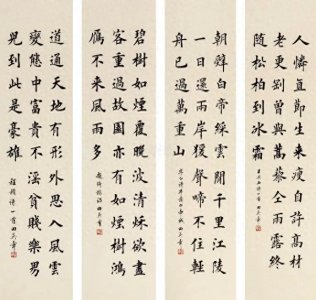 人憐直節生來瘦自許高材
老更剛曾與蒿藜仝雨露終
随松柏到冰霜
朝辭白帝綵雲間千里江陵
一日還兩岸猿聲啼不住輕
舟已過萬重山
碧樹如煙覆晚波清秋欲盡
客重過故園亦有如煙樹鴻
雁不來風雨多
道通天地有形外思入風雲
變態中富貴不淫貧賤樂男
兒到此是豪雄
程顥詩一首田英章